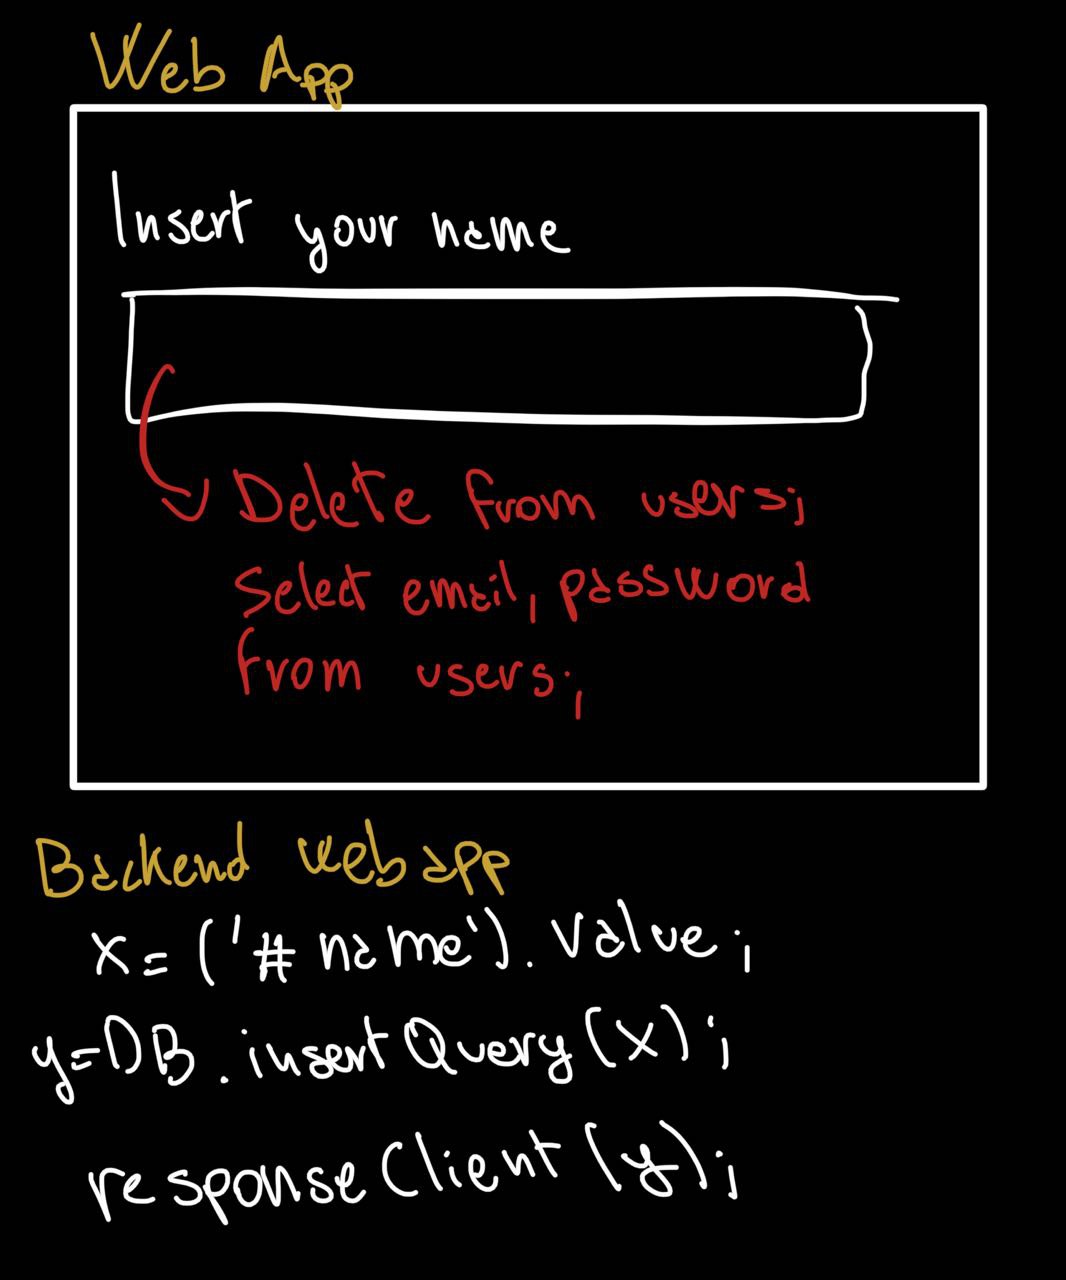 Web App
Insert your name
Delete from users;
Select email, password
from users;
Backend webapp
x= ('# name'). value;
y=DB.insertQuery(x);
responseClient(y);